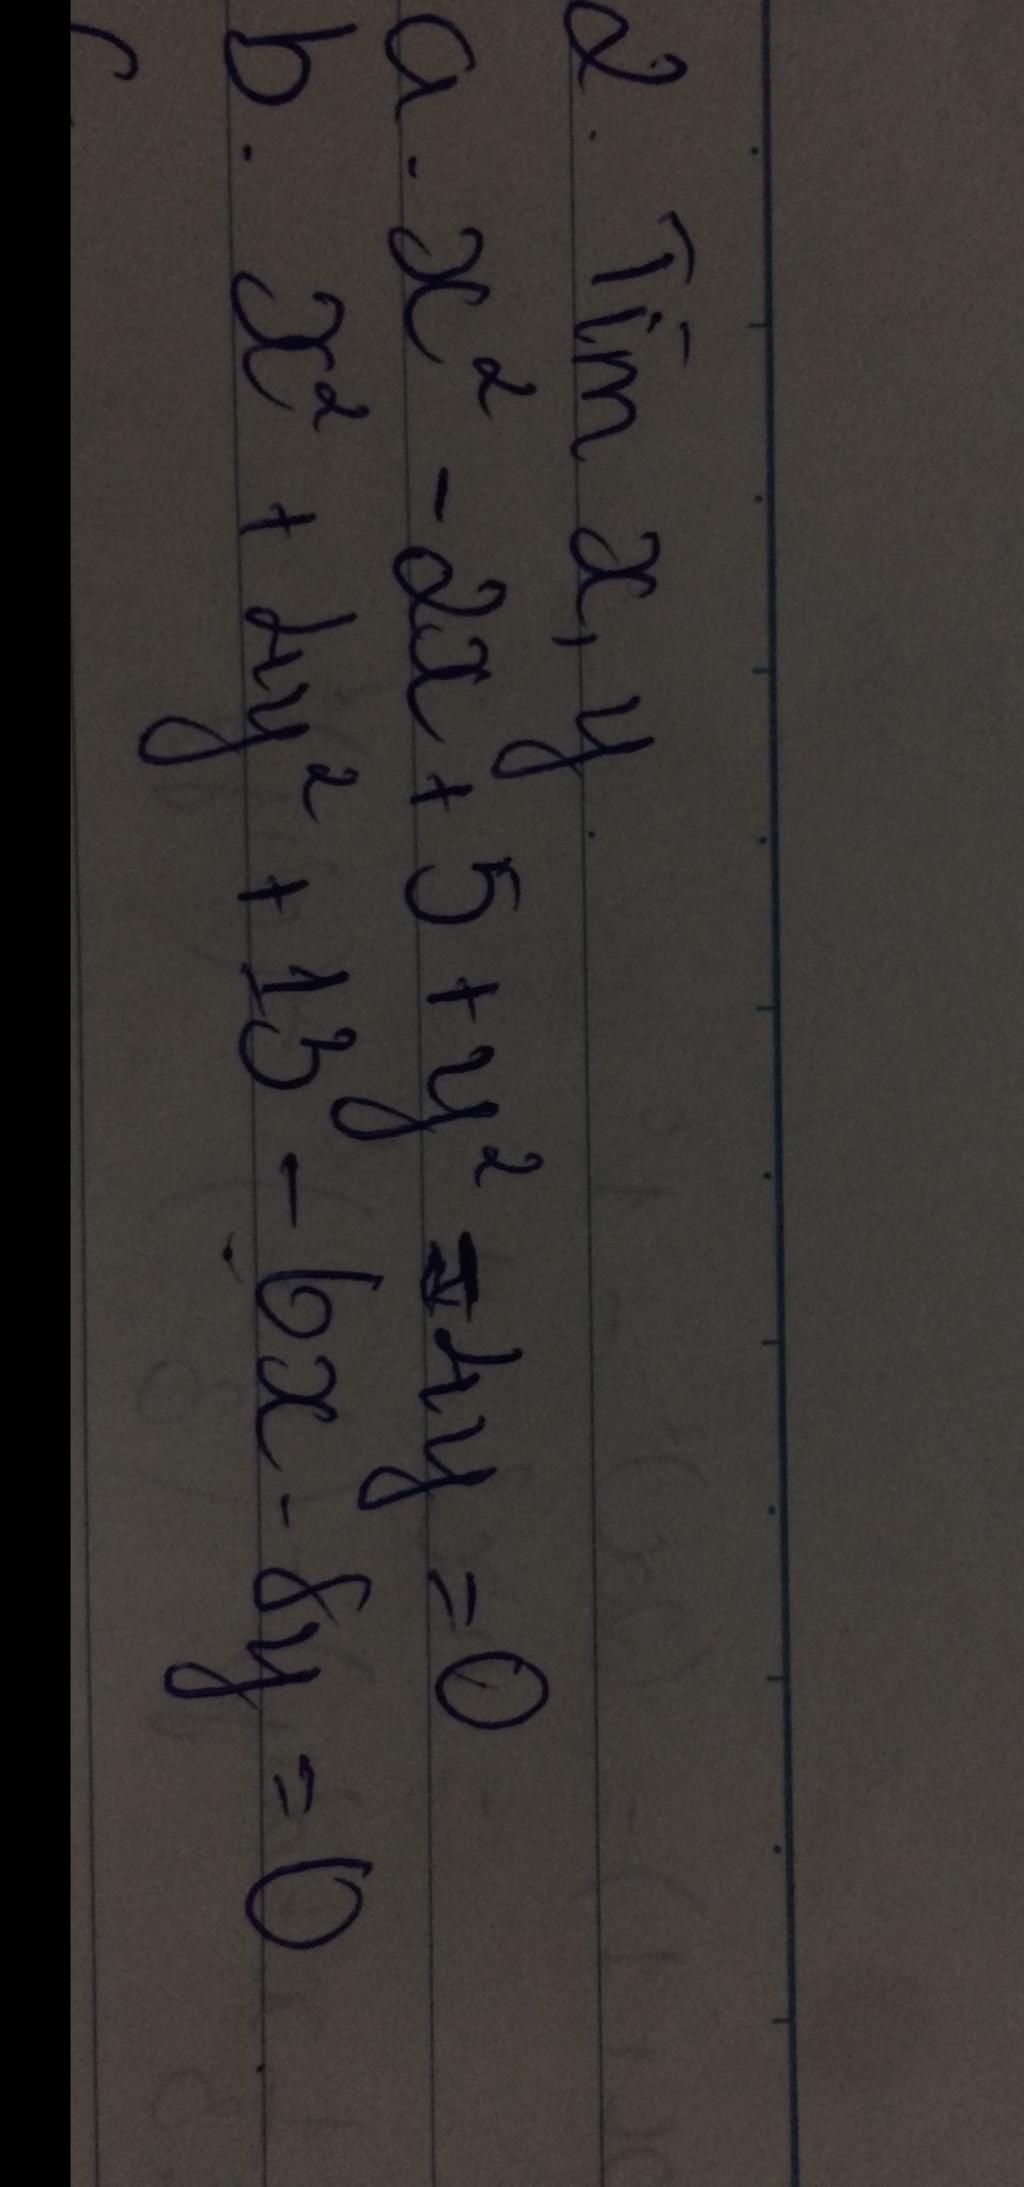 2. Tìm x, y
a. x² - 2x + 5 + y² - 4y = 0
b. x² + 4y² + 13 - 6x - 8y = 0